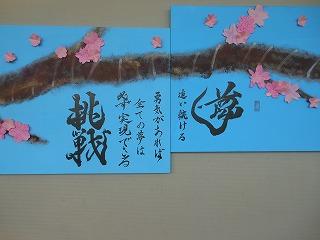 夢
追い続ける
勇気があれば
全ての夢は
必ず実現できる
挑戦